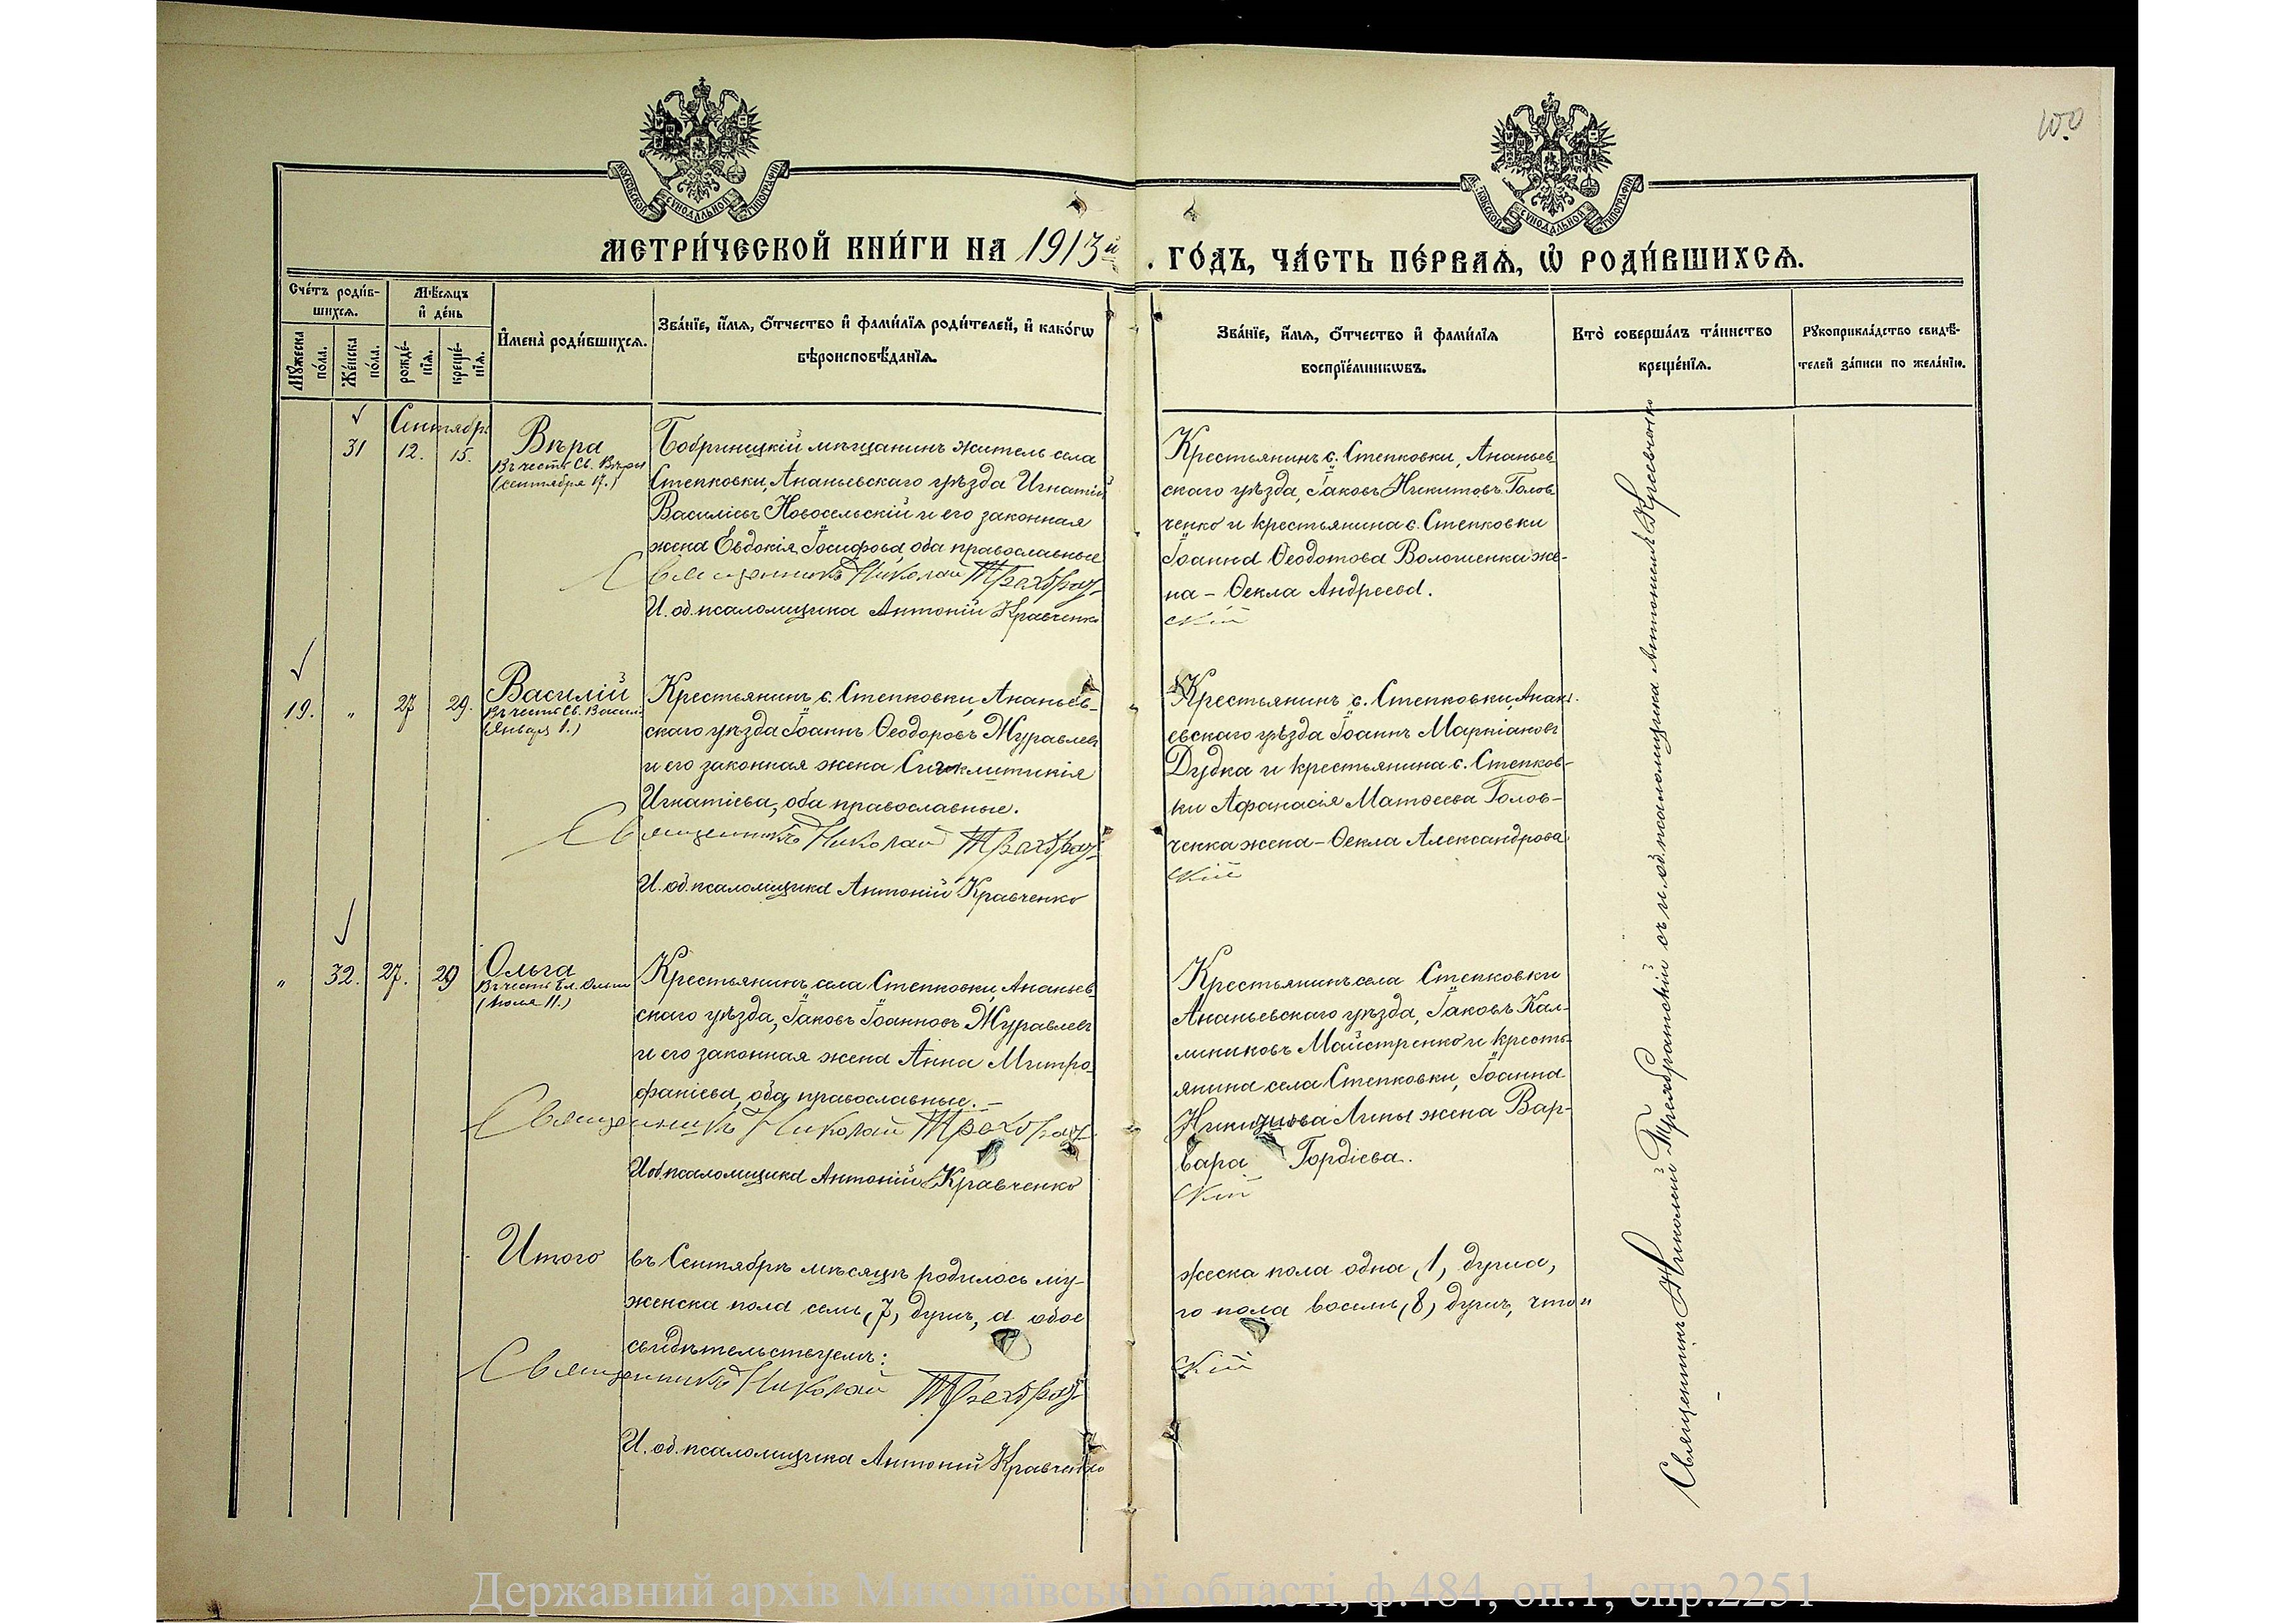 100
МОСКОВСКОЙ СѴНОДАЛЬНОЙ ТИПОГРАФІИ
МОСКОВСКОЙ СѴНОДАЛЬНОЙ ТИПОГРАФІИ
МЕТРИ́ЧЕСКОЙ КНИ́ГИ НА 1913й ГО́ДЪ, ЧА́СТЬ ПЕ́РВАѦ, Ѽ РОДИ́ВШИХСѦ.
Сче́тъ роди́в-
шихсѧ.
Мꙋ́жеска
по́ла.
Же́нска
по́ла.
Мѣ́сѧцъ
и҆ де́нь
рожде́-
нїѧ.
креще́-
нїѧ.
И҆мена̀ роди́вшихсѧ.
Зва́нїе, и҆́мѧ, ѻ҆́тчество и҆ фами́лїѧ роди́телей, и҆ како́гѡ
вѣроисповѣ́данїѧ.
Зва́нїе, и҆́мѧ, ѻ҆́тчество и҆ фами́лїѧ
воспрїе́мникѡвъ.
Кто̀ соверша́лъ та́инство
креще́нїѧ.
Рꙋкоприкла́дство свидѣ́-
телей за́писи по жела́нїю.
Сентябрь
31
12.
15.
Вѣра
Въ честь Св. Вѣры
(сентября 17.)
Бобринецкій мѣщанинъ житель села
Степковки, Ананьевскаго уѣзда Игнатій
Василіевъ Новосельскій и его законная
жена Евдокія Іосифова, оба православные
Священникъ Николай Трехбрат-
И. об. псаломщика Антоній Кравченко
Крестьянинъ с. Степковки, Ананьев-
скаго уѣзда, Іаковъ Никитовъ Голов-
ченко и крестьянина с. Степковки
Іоанна Ѳеодотова Волошенка же-
на – Ѳекла Андреева.
скій
19.
"
27
29.
Василій
Въ честь Св. Васил.
(Января 1.)
Крестьянинъ с. Степковки, Ананьев-
скаго уѣзда Іоаннъ Ѳеодоровъ Журавлевъ
и его законная жена Сигклитикія
Игнатіева, оба православные.
Священникъ Николай Трехбрат-
И. об. псаломщика Антоній Кравченко
Крестьянинъ с. Степковки, Анань-
евскаго уѣзда Іоаннъ Маркіановъ
Дудка и крестьянина с. Степков-
ки Афанасія Матѳеева Голов-
ченка жена – Ѳекла Александрова
скій
"
32.
27.
29
Ольга
Въ честь Бл. Ольги
(Іюля 11.)
Крестьянинъ села Степковки, Ананьев-
скаго уѣзда, Іаковъ Іоанновъ Журавлевъ
и его законная жена Анна Митро-
фаніева, оба православные. –
Священникъ Николай Трехбрат-
И об. псаломщика Антоній Кравченко
Крестьянинъ села Степковки
Ананьевскаго уѣзда, Іаковъ Кал-
лениковъ Майстренко и кресть-
янина села Степковки, Іоанна
Липы жена Вар-
вара Гордіева.
скій
Итого въ Сентябрѣ мѣсяцѣ родилось му-
жеска пола одна, (1), душа,
женска пола семь, (7), душъ, а обое
го пола восемь, (8), душъ, что и
свидѣтельствуемъ:
Священникъ Николай Трехбрат-
скій
И. об. псаломщика Антоній Кравченко
Священникъ Николай Трехбратскій съ и. об. псаломщика Антоніемъ Кравченко
Державний архів Миколаївської області, ф.484, оп.1, спр.2251